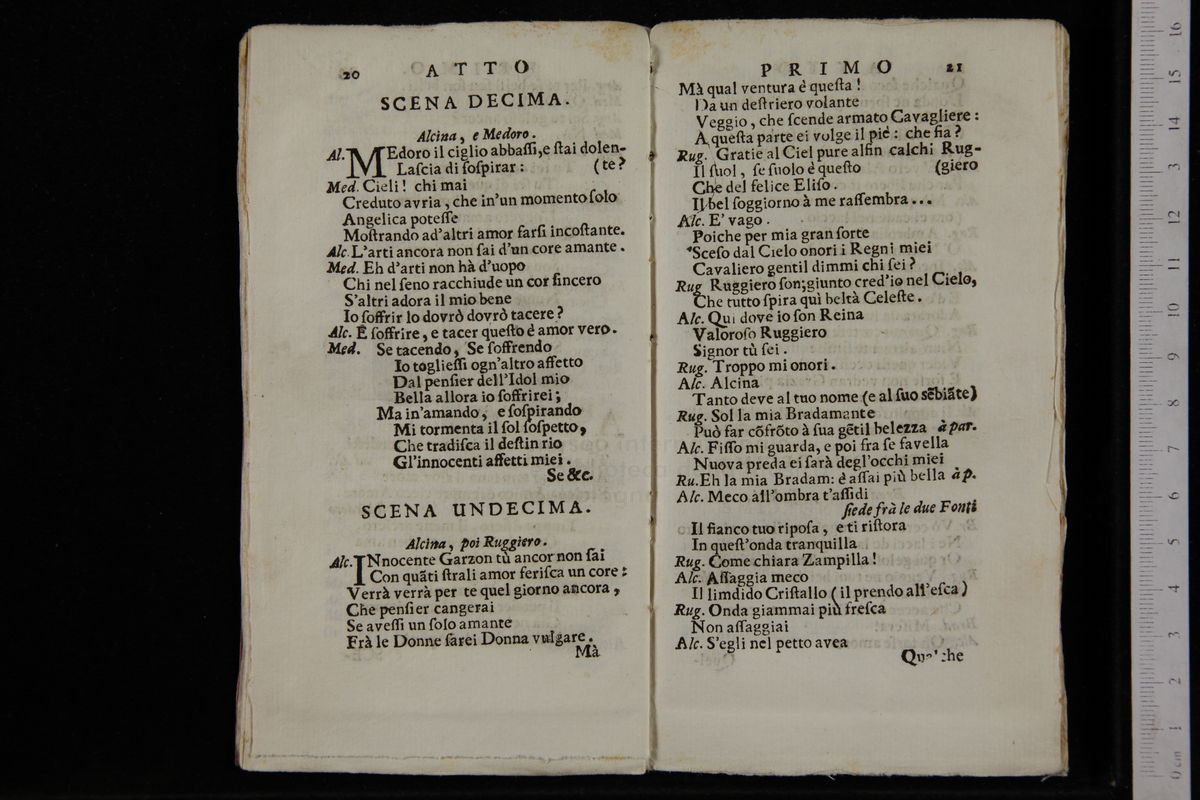 20 ATTO
SCENA DECIMA.
Alcina, e Medoro.
Al. MEdoro il ciglio abbaſſi,e ſtai dolen-
Laſcia di ſoſpirar : (te?
Med. Cieli! chi mai
Creduto avria, che in'un momento ſolo
Angelica poteſſe
Moſtrando ad'altri amor farſi incoſtante.
Alc. L'arti ancora non ſai d'un core amante.
Med. Eh d'arti non hà d'uopo
Chi nel ſeno racchiude un cor ſincero
S'altri adora il mio bene
Io ſoffrir lo dovrò dovrò tacere?
Alc. E ſoffrire, e tacer queſto è amor vero.
Med. Se tacendo, Se ſoffrendo
Io toglieſſi ogn'altro affetto
Dal penſier dell'Idol mio
Bella allora io ſoffrirei;
Ma in'amando, e ſoſpirando
Mi tormenta il ſol ſoſpetto,
Che tradiſca il deſtin rio
Gl'innocenti affetti miei.
Se &c.
SCENA UNDECIMA.
Alcina, poi Ruggiero.
Alc. INnocente Garzon tù ancor non ſai
Con quāti ſtrali amor feriſca un core:
Verrà verrà per te quel giorno ancora,
Che penſier cangerai
Se aveſſi un ſolo amante
Frà le Donne ſarei Donna vulgare.
Mà
PRIMO 21
Mà qual ventura è queſta!
Da un deſtriero volante
Veggio, che ſcende armato Cavagliere:
A queſta parte ei volge il piè: che fia?
Rug. Gratie al Ciel pure alfin calchi Rug-
Il ſuol, ſe ſuolo è queſto (giero
Che del felice Eliſo.
Il bel ſoggiorno à me raſſembra...
Alc. E' vago.
Poiche per mia gran ſorte
Sceſo dal Cielo onori i Regni miei
Cavaliero gentil dimmi chi ſei?
Rug Ruggiero ſon;giunto cred'io nel Cielo,
Che tutto ſpira quì beltà Celeſte.
Alc. Qui dove io ſon Reina
Valoroſo Ruggiero
Signor tù ſei.
Rug. Troppo mi onori.
Alc. Alcina
Tanto deve al tuo nome (e al ſuo sēbiāte)
Rug. Sol la mia Bradamante
Può far cōfrōto à ſua gētil belezza à par.
Alc. Fiſſo mi guarda, e poi fra ſe favella
Nuova preda ei ſarà degl'occhi miei
Ru. Eh la mia Bradam: è aſſai più bella à p.
Alc. Meco all'ombra t'aſſidi
ſiede frà le due Fonti
Il fianco tuo ripoſa, e ti riſtora
In queſt'onda tranquilla
Rug. Come chiara Zampilla!
Alc. Aſſaggia meco
Il limdido Criſtallo (il prendo all'eſca)
Rug. Onda giammai più freſca
Non aſſaggiai
Alc. S'egli nel petto avea